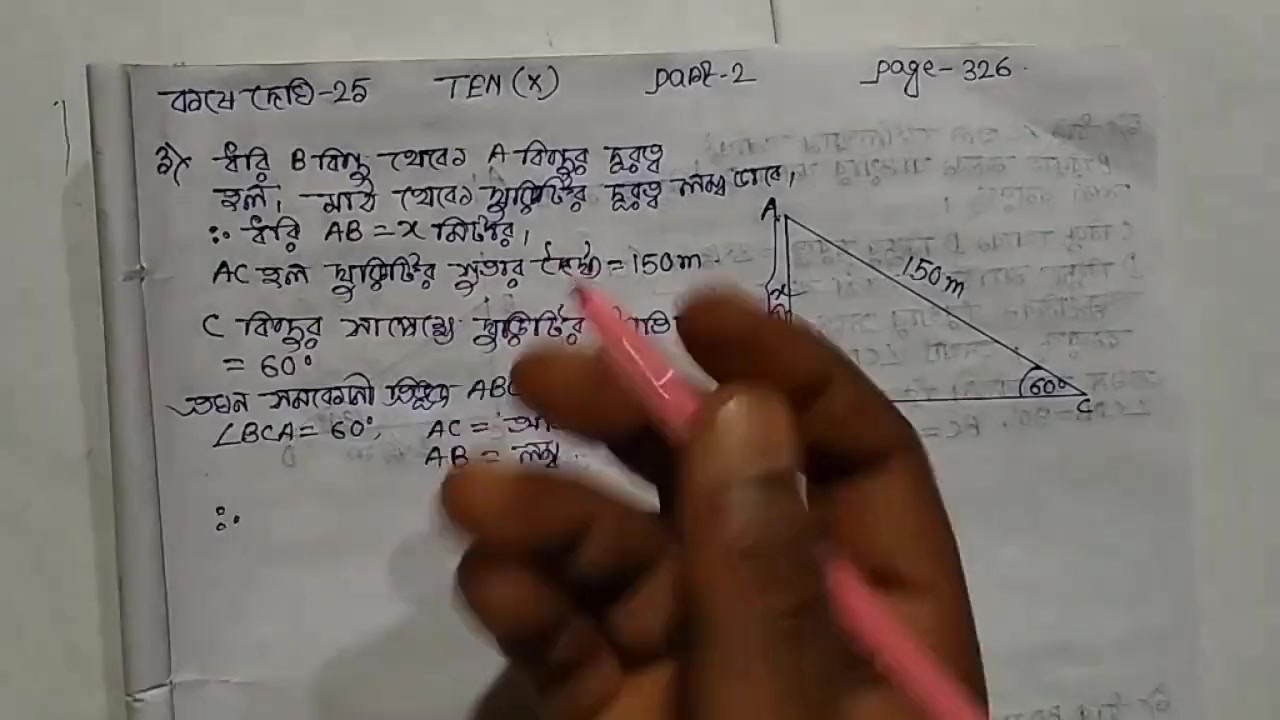 কষে দেখি-25 TEN (X) part-2 page-326.
3) ধরি B বিন্দু থেকে A বিন্দুর দূরত্ব
হল, মাঠ থেকে ঘুড়িটির দূরত্ব লম্ব ভাবে,
∴ ধরি AB = x মিটার,
AC হল ঘুড়িটির সুতার দৈর্ঘ্য = 150m
C বিন্দুর সাপেক্ষে ঘুড়িটির
= 60°
তখন সমকোনী ত্রিভুজে ABC
∠BCA = 60°, AC =
AB = লম্ব.
∴
A
150m
x
60°
C